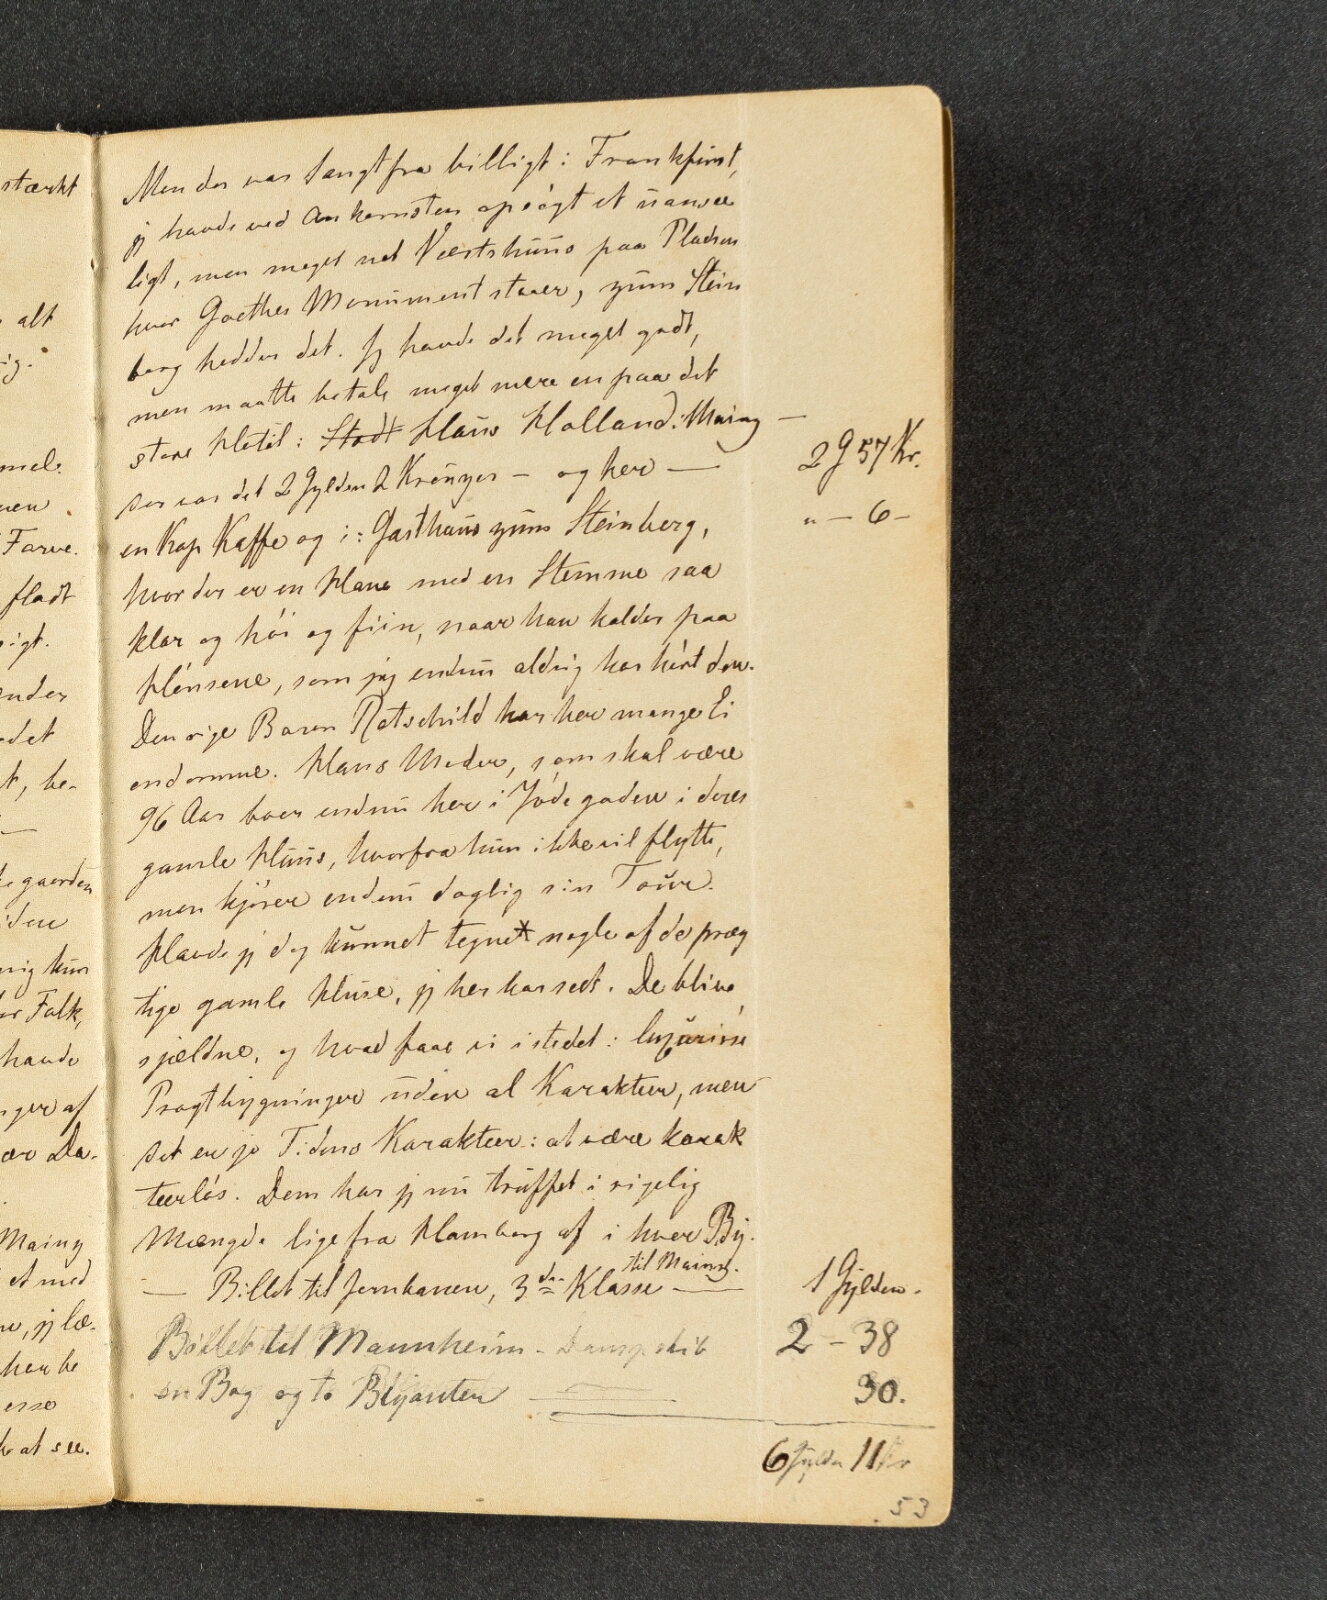 Men der var langt fra billigt i Frankfurt,
jeg havde ved Ankomsten opsögt et uansee
ligt, men meget net Værtshuus paa Pladsen
hvor Goethes Monument staaer, zum Stein
berg hedder det. Jeg havde det meget godt,
men maatte betale meget mere en paa det
store Hotel: Stadt Haus Holland i Mainz —
der var det 2 Gylden 2 Kreuzer — og her — 2 G 57 Kr.
en Kop Kaffe og i: Gasthaus zum Steinberg, " — 6 —
hvor der er en Hane med en Stemme saa
klar og høi og fiin, naar han kalder paa
Hönsene, som jeg endnu aldrig har hört den.
Den rige Baron Rotschild har her mange Ei
endomme. Hans Moder, som skal være
96 Aar boer endnu her i Jödegaden i deres
gamle Huus, hvorfra hun ikke vil flytte,
men kjörer endnu daglig sin Tour.
Havde jeg dog kunnet tegnet nogle af de præg
tige gamle Huse, jeg her har seet. De blive
sjældne, og hvad faae vi istedet: luxuriöse
Pragtbygninger uden al Karakteer, men
det er jo Tidens Karakteer: at være karak
teerlös. Dem har jeg nu truffet i rigelig
Mængde lige fra Hamborg af i hver By.
til Mainz.
— Billet til Jernbanen, 3die Klasse — 1 Gylden.
Billet til Mannheim - Dampskib 2 - 38
en Bog og to Blyanter — 30.
6 Gylden 11 Kr
53
stærkt
alt
ig.
mel.
Farve.
fladt
sigt.
ender
det
t, be-
gaarden
iden
mig kun
Folk,
havde
nger af
ær Da-
Mainz
et med
ne, jeg læ-
han be
esse
at see.